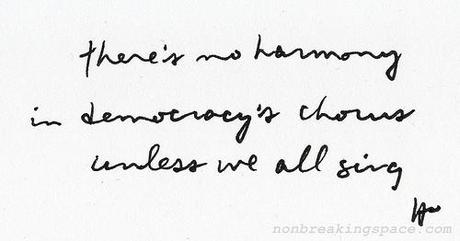 there's no harmony
in democracy's chorus
unless we all sing
nonbreakingspace.com